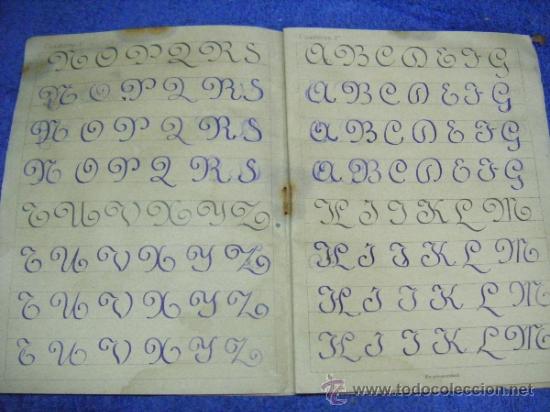 Cuaderno 1º
N O P Q R S
N O P Q R S
N O P Q R S
N O P Q R S
T U V X Y Z
T U V X Y Z
T U V X Y Z
T U V X Y Z
Cuaderno 1º
A B C D E F G
A B C D E F G
A B C D E F G
A B C D E F G
H I J K L M
H I J K L M
H I J K L M
H I J K L M
Es propiedad.
www.todocoleccion.net